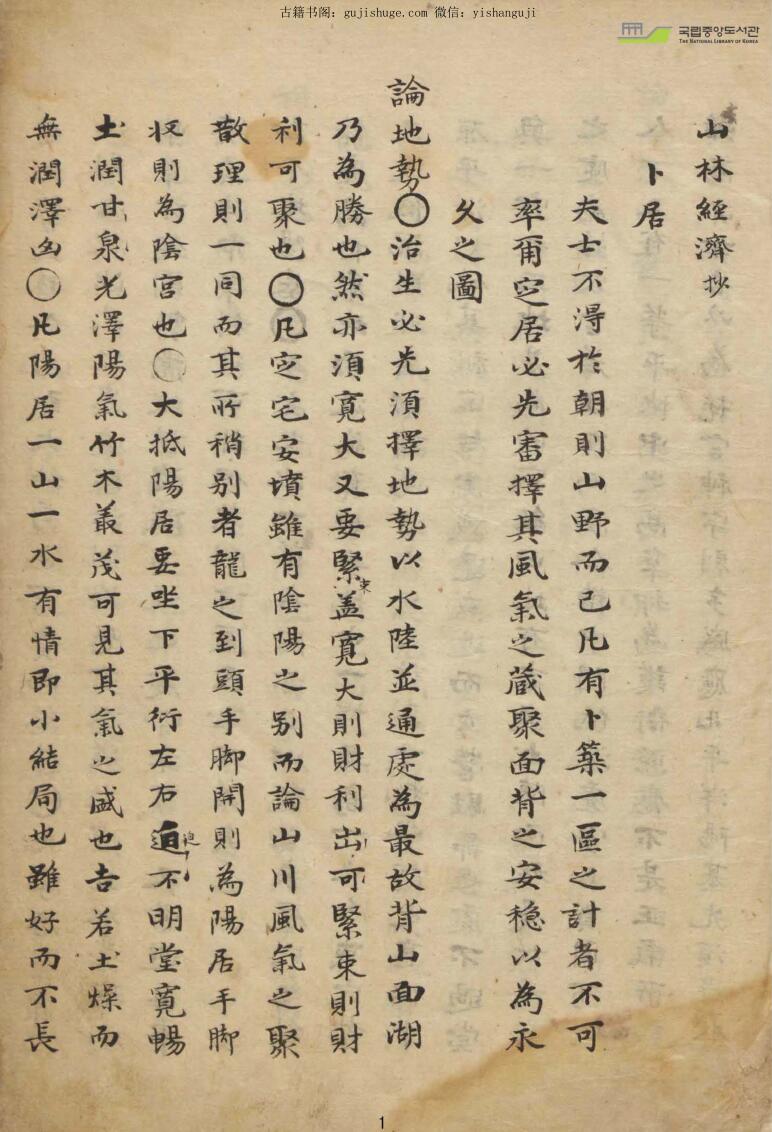 古籍书阁：gujishuge.com 微信：yishanguji
국립중앙도서관
THE NATIONAL LIBRARY OF KOREA
山林經濟抄
卜居
夫士不淂於朝則山野而已凡有卜築一區之計者不可
率爾㝎居必先審擇其風氣之蔵聚面背之安穏以為永
久之圖
論地勢〇治生必先須擇地勢以水陸並通處為最故背山面湖
乃為勝也然亦湏寛大又要緊束盖寛大則財利出可緊束則財
利可聚也〇凡㝎宅安墳雖有陰陽之别而論山川風氣之聚
散理則一同而其所稍别者龍之到頭手脚開則為陽居手脚
収則為陰宫也〇大抵陽居要坐下平衍左右迫迫不明堂寛暢
土潤甘泉光澤陽氣竹木叢茂可見其氣之盛也吉若土燥而
無潤澤凶〇凡陽居一山一水有情即小結局也雖好而不長
1